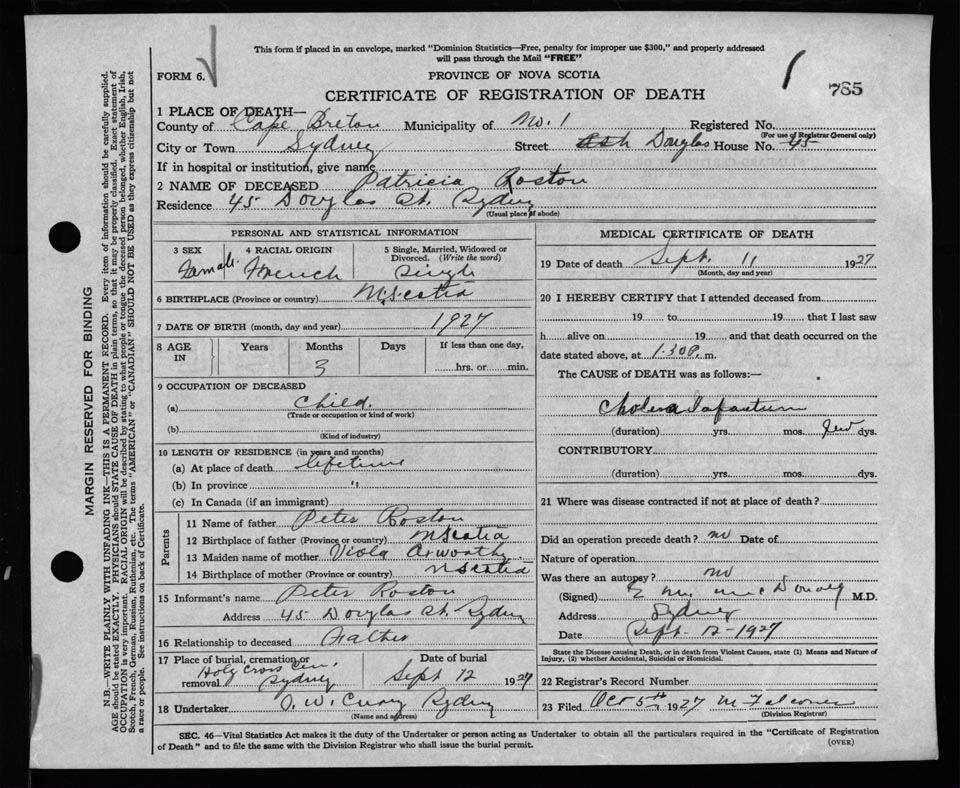 This form if placed in an envelope, marked "Dominion Statistics—Free, penalty for improper use $300," and properly addressed
will pass through the Mail "FREE"
FORM 6.
PROVINCE OF NOVA SCOTIA
785
CERTIFICATE OF REGISTRATION OF DEATH
1 PLACE OF DEATH—
County of Cape Breton Municipality of No. 1 Registered No.
(For use of Registrar General only)
City or Town Sydney Street Douglas House No. 45
If in hospital or institution, give name
2 NAME OF DECEASED Patricia Roston
Residence 45 Douglas St. Sydney
(Usual place of abode)
PERSONAL AND STATISTICAL INFORMATION
3 SEX Female 4 RACIAL ORIGIN French 5 Single, Married, Widowed or Divorced. (Write the word) Single
6 BIRTHPLACE (Province or country) N. Scotia
7 DATE OF BIRTH (month, day and year) 1927
8 AGE IN Years Months 3 Days If less than one day, hrs. or min.
9 OCCUPATION OF DECEASED
(a) Child.
(Trade or occupation or kind of work)
(b)
(Kind of industry)
10 LENGTH OF RESIDENCE (in years and months)
(a) At place of death lifetime
(b) In province "
(c) In Canada (if an immigrant)
Parents
11 Name of father Peter Roston
12 Birthplace of father (Province or country) N Scotia
13 Maiden name of mother Viola
14 Birthplace of mother (Province or country) N Scotia
15 Informant's name Peter Roston
Address 45 Douglas St. Sydney
16 Relationship to deceased Father
17 Place of burial, cremation or removal Holy Cross Cem. Sydney Date of burial Sept 12 1927
18 Undertaker Sydney
(Name and address)
MEDICAL CERTIFICATE OF DEATH
19 Date of death Sept. 11 1927
(Month, day and year)
20 I HEREBY CERTIFY that I attended deceased from
19 to 19 , that I last saw
h alive on 19 and that death occurred on the
date stated above, at 1.30 P. m.
The CAUSE of DEATH was as follows:—
Cholera Infantum
(duration) yrs. mos. few dys.
CONTRIBUTORY
(duration) yrs. mos. dys.
21 Where was disease contracted if not at place of death?
Did an operation precede death? no Date of
Nature of operation
Was there an autopsy? no
(Signed) M.D.
Address Sydney
Date Sept. 12-1927
State the Disease causing Death, or in death from Violent Causes, state (1) Means and Nature of
Injury, (2) whether Accidental, Suicidal or Homicidal.
22 Registrar's Record Number
23 Filed Oct 5th 1927
(Division Registrar)
SEC. 46—Vital Statistics Act makes it the duty of the Undertaker or person acting as Undertaker to obtain all the particulars required in the "Certificate of Registration
of Death" and to file the same with the Division Registrar who shall issue the burial permit.
(OVER)
MARGIN RESERVED FOR BINDING
N.B.—WRITE PLAINLY WITH UNFADING INK—THIS IS A PERMANENT RECORD. Every item of information should be carefully supplied.
AGE should be stated EXACTLY. PHYSICIANS should STATE CAUSE OF DEATH in plain terms, so that it may be properly classified. Exact statement of
OCCUPATION is very important. RACIAL ORIGIN will be described by stating to what people or tongue the deceased person belonged, whether English, Irish,
Scotch, French, German, Russian, Ruthenian, etc. The terms "AMERICAN" or "CANADIAN" SHOULD NOT BE USED as they express citizenship but not
a race or people. See instructions on back of Certificate.